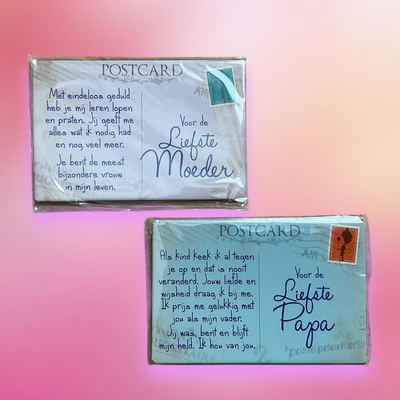 POSTCARD
AIR M
Met eindeloos geduld
heb je mij leren lopen
en praten. Jij geeft me
alles wat ik nodig had
en nog veel meer.
Je bent de meest
bijzondere vrouw
in mijn leven.
Voor de
Liefste
Moeder
POSTCARD
AIR M
Als kind keek ik al tegen
je op en dat is nooit
veranderd. Jouw liefde en
wijsheid draag ik bij me.
Ik prijs me gelukkig met
jou als mijn vader.
Jij was, bent en blijft
mijn held. Ik hou van jou.
Voor de
Liefste
Papa